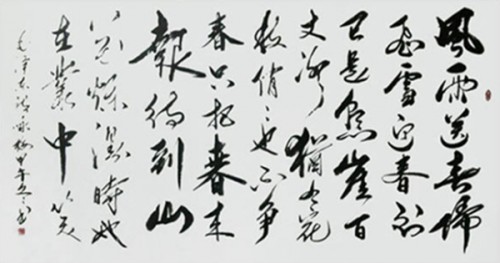 風雨送春歸
飛雪迎春到
已是懸崖百
丈冰猶有花
枝俏々也不争
春只把春来
報待到山
花爛漫時她
在叢中笑
毛澤東詞詠梅甲午